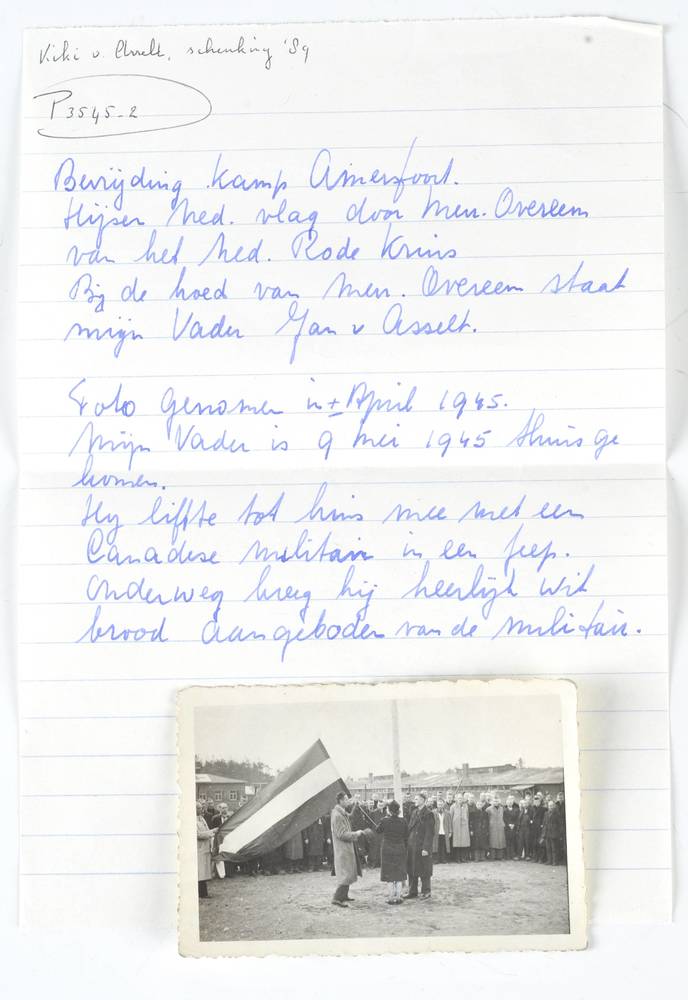 Viki v. Asselt, schenking '89
P3545-2
Bevrijding kamp Amersfoort.
Hijsen Ned. vlag door Mevr. Overeem
van het Ned. Rode Kruis
Bij de hoed van Mevr. Overeem staat
mijn Vader Jan v Asselt.
Foto genomen in ± April 1945.
Mijn Vader is 9 mei 1945 thuis ge
komen.
Hij liftte tot huis mee met een
Canadese militair in een jeep.
Onderweg kreeg hij heerlijk wit
brood aangeboden van de militair.